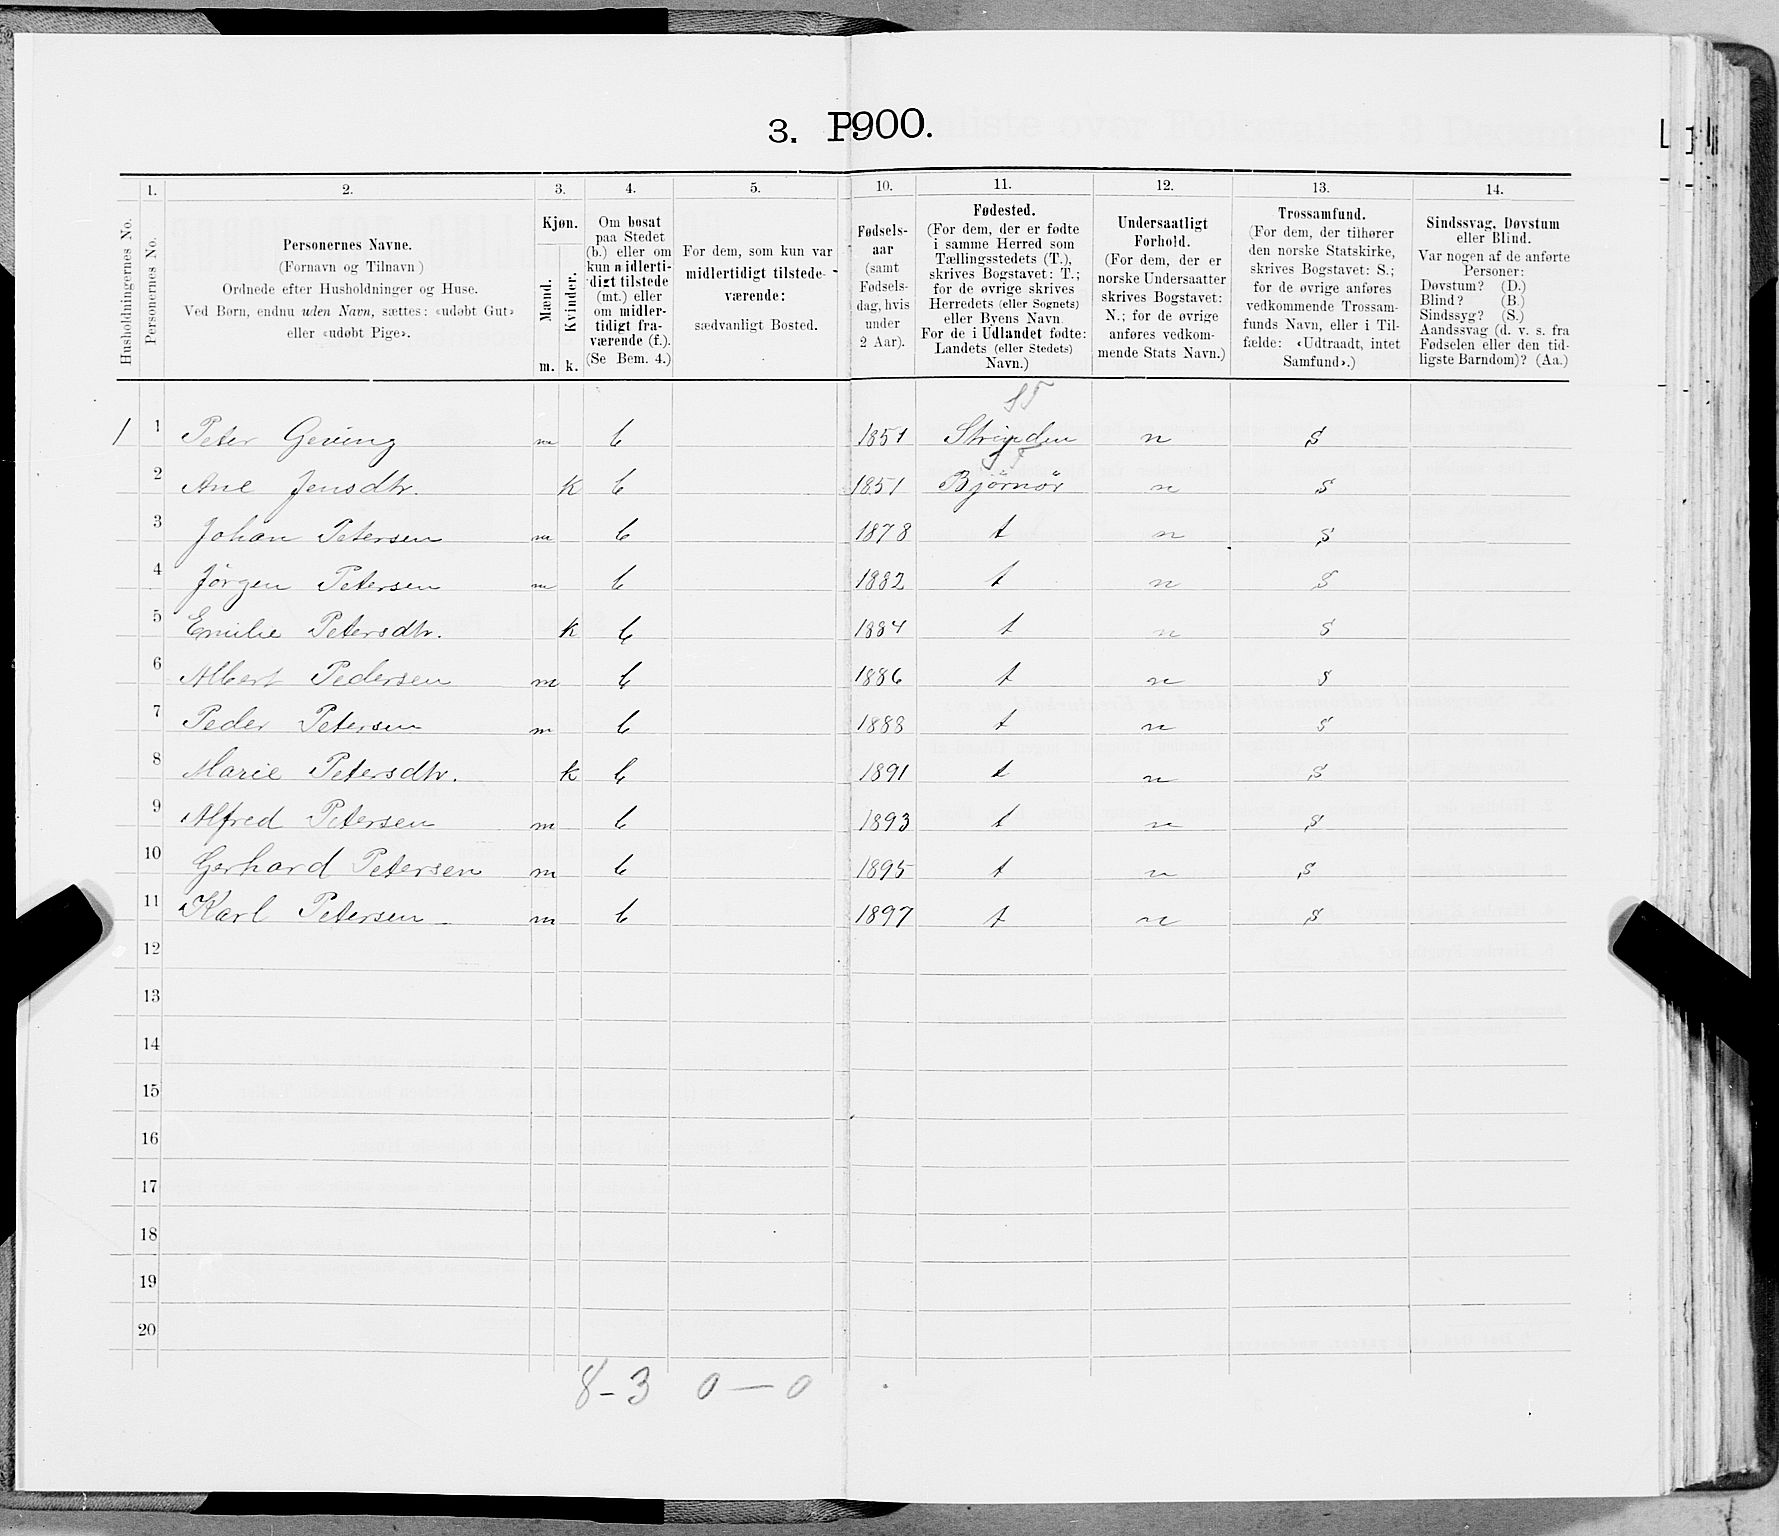 3. P.900.
1. 2. 3. 4. 5. 10. 11. 12. 13. 14.
Husholdningernes No.
Personernes No.
Personernes Navne.
(Fornavn og Tilnavn)
Ordnede efter Husholdninger og Huse.
Ved Børn, endnu uden Navn, sættes: «udøbt Gut»
eller «udøbt Pige».
Kjøn.
Mænd.
Kvinder.
m. k.
Om bosat
paa Stedet
(b.) eller om
kun midlerti-
digt tilstede
(mt.) eller
om midler-
tidigt fra-
værende (f.).
(Se Bem. 4.)
For dem, som kun var
midlertidigt tilstede-
værende:
sædvanligt Bosted.
Fødsels-
aar
(samt
Fødsels-
dag, hvis
under
2 Aar).
Fødested.
(For dem, der er fødte
i samme Herred som
Tællingsstedets (T.),
skrives Bogstavet: T.;
for de øvrige skrives
Herredets (eller Sognets)
eller Byens Navn.
For de i Udlandet fødte:
Landets (eller Stedets)
Navn.)
Undersaatligt
Forhold.
(For dem, der er
norske Undersaatter
skrives Bogstavet:
N.; for de øvrige
anføres vedkom-
mende Stats Navn.)
Trossamfund.
(For dem, der tilhører
den norske Statskirke,
skrives Bogstavet: S.;
for de øvrige anføres
vedkommende Trossam-
funds Navn, eller i Til-
fælde: «Udtraadt, intet
Samfund».)
Sindssvag, Døvstum
eller Blind.
Var nogen af de anførte
Personer:
Døvstum? (D.)
Blind? (B.)
Sindssyg? (S.)
Aandssvag (d. v. s. fra
Fødselen eller den tid-
ligste Barndom)? (Aa.)
ST
1 1 Peter Geving m b 1851 Strinden n S
ST
2 Ane Jensdtr. k b 1851 Bjørnør n S
3 Johan Petersen m b 1878 t n S
4 Jørgen Petersen m b 1882 t n S
5 Emilie Petersdtr. k b 1884 t n S
6 Albert Pedersen m b 1886 t n S
7 Peder Petersen m b 1888 t n S
8 Marie Petersdtr. k b 1891 t n S
9 Alfred Petersen m b 1893 t n S
10 Gerhard Petersen m b 1895 t n S
11 Karl Petersen m b 1897 t n S
12
13
14
15
16
17
18
19
20
8-3 0-0